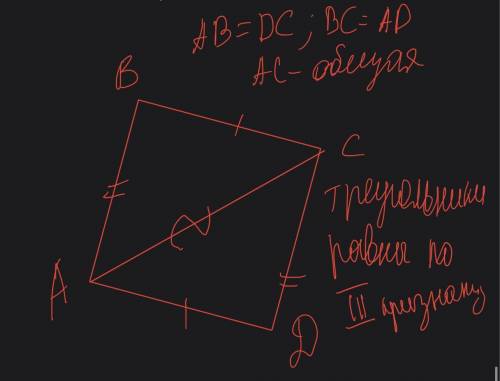 AB = DC ; BC = AD
AC - общая
B
C
A
D
треугольники
равны по
III признаку